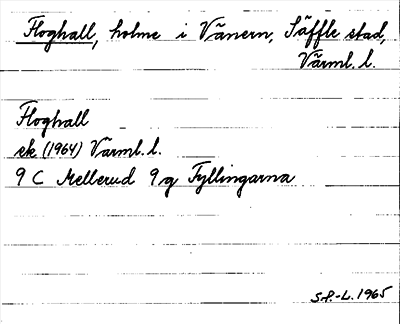 Floghall, holme i Vänern, Säffle stad,
Värml. l.
Floghall
ek (1964) Värml. l.
9 C Mellerud 9g Fyllingarna
S.P.-L. 1965